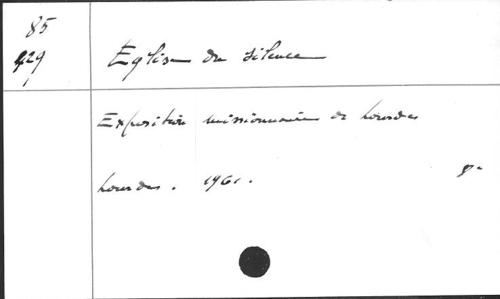 85
929
Eglise du silence
Exposition missionnaire de Lourdes
Lourdes. 1961.
8°